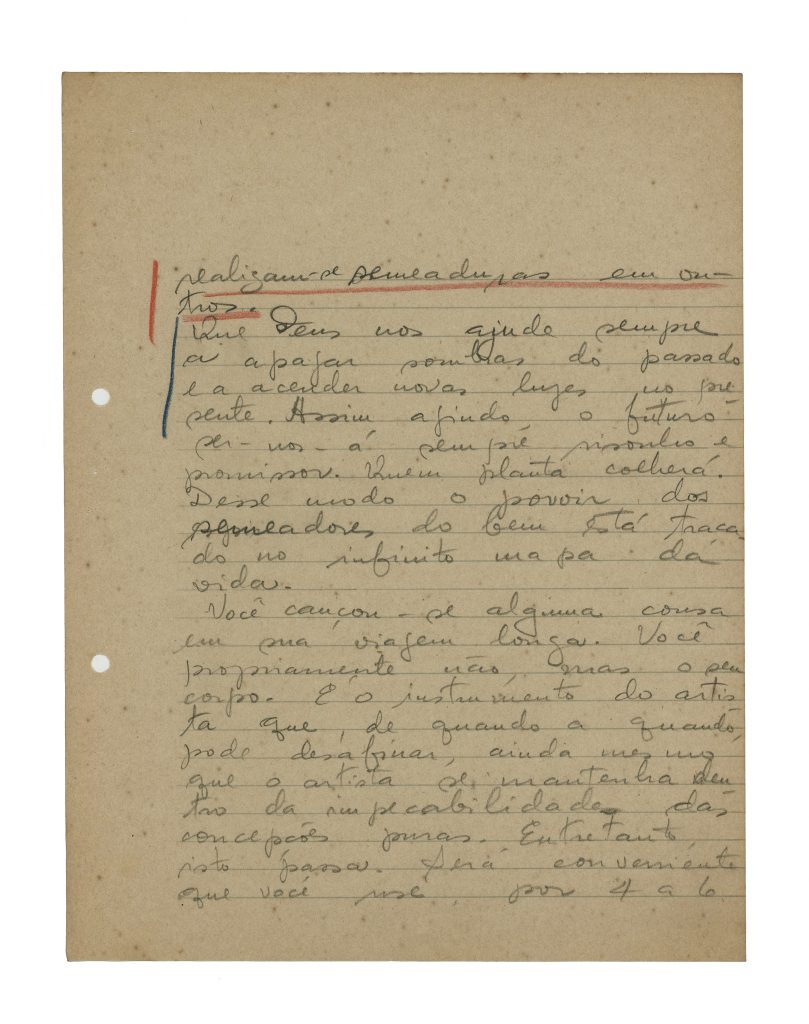 realizam-se semeaduras em ou-
tros.
Que Deus nos ajude sempre
a apagar sombras do passado
e a acender novas luzes no pre
sente. Assim agindo, o futuro
ser-nos-á sempre risonho e
promissor. Quem planta colherá.
Desse modo o povoir dos
semeadores do bem está traça-
do no infinito mapa da
vida.
Você cançou-se alguma cousa
em sua viagem longa. Você
propriamente não, mas o seu
corpo. É o instrumento do artis-
ta que, de quando a quando,
pode desafinar, ainda mesmo
que o artista se mantenha den
tro da impecabilidade das
concepções puras. Entretanto,
isto passa. Será conveniente
que você use, por 4 a 6